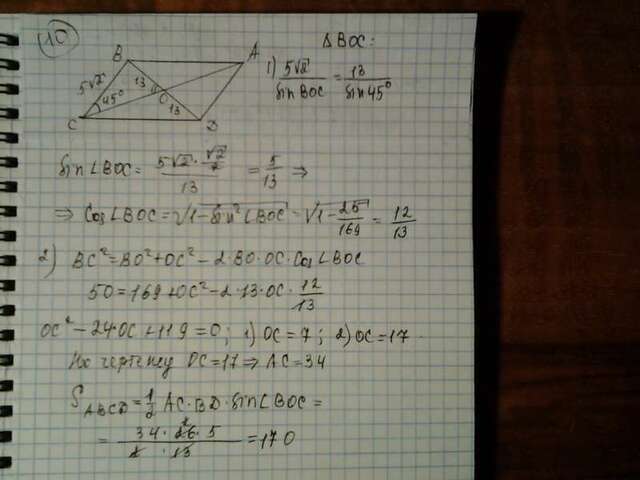 10
B A
5√2 13 O
45° 13
C D
Δ BOC:
1) 5√2 / sin BOC = 13 / sin 45°
sin ∠BOC = (5√2 · √2/2) / 13 = 5/13 ⇒
⇒ Cos ∠BOC = √(1 − sin² ∠BOC) = √(1 − 25/169) = 12/13
2) BC² = BO² + OC² − 2·BO·OC·Cos ∠BOC
50 = 169 + OC² − 2·13·OC · 12/13
OC² − 24·OC + 119 = 0; 1) OC = 7; 2) OC = 17
По чертежу OC = 17 ⇒ AC = 34
S ABCD = 1/2 AC·BD·sin ∠BOC =
= (34 · 26 · 5) / (2 · 13) = 170